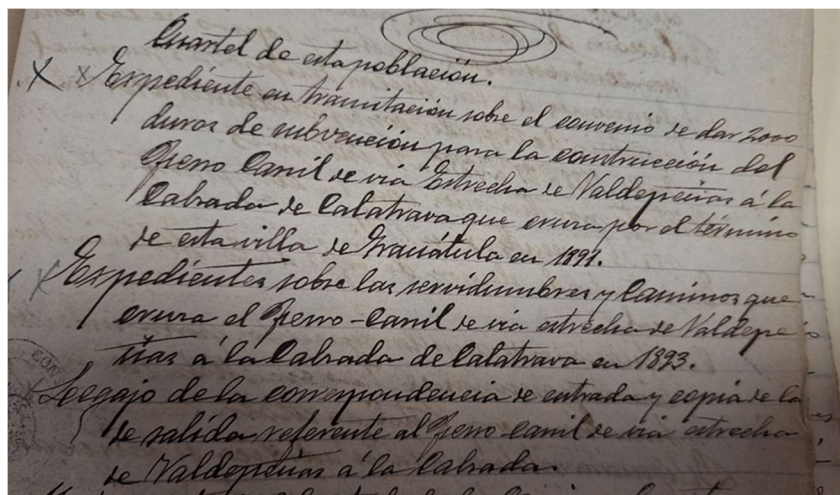 Cuartel de esta población.
Expediente en tramitación sobre el convenio de dar 2000
duros de subvención para la construcción del
Ferro Carril de via Estrecha de Valdepeñas á la
Calzada de Calatrava que cruza por el término
de esta villa de Granátula en 1891.
Expedientes sobre las servidumbres y Caminos que
cruza el Ferro-Carril de via estrecha de Valdepe
ñas á la Calzada de Calatrava en 1893.
Legajo de la correspondencia de entrada y copia de la
de salida referente al Ferro-carril de via estrecha
de Valdepeñas á la Calzada.